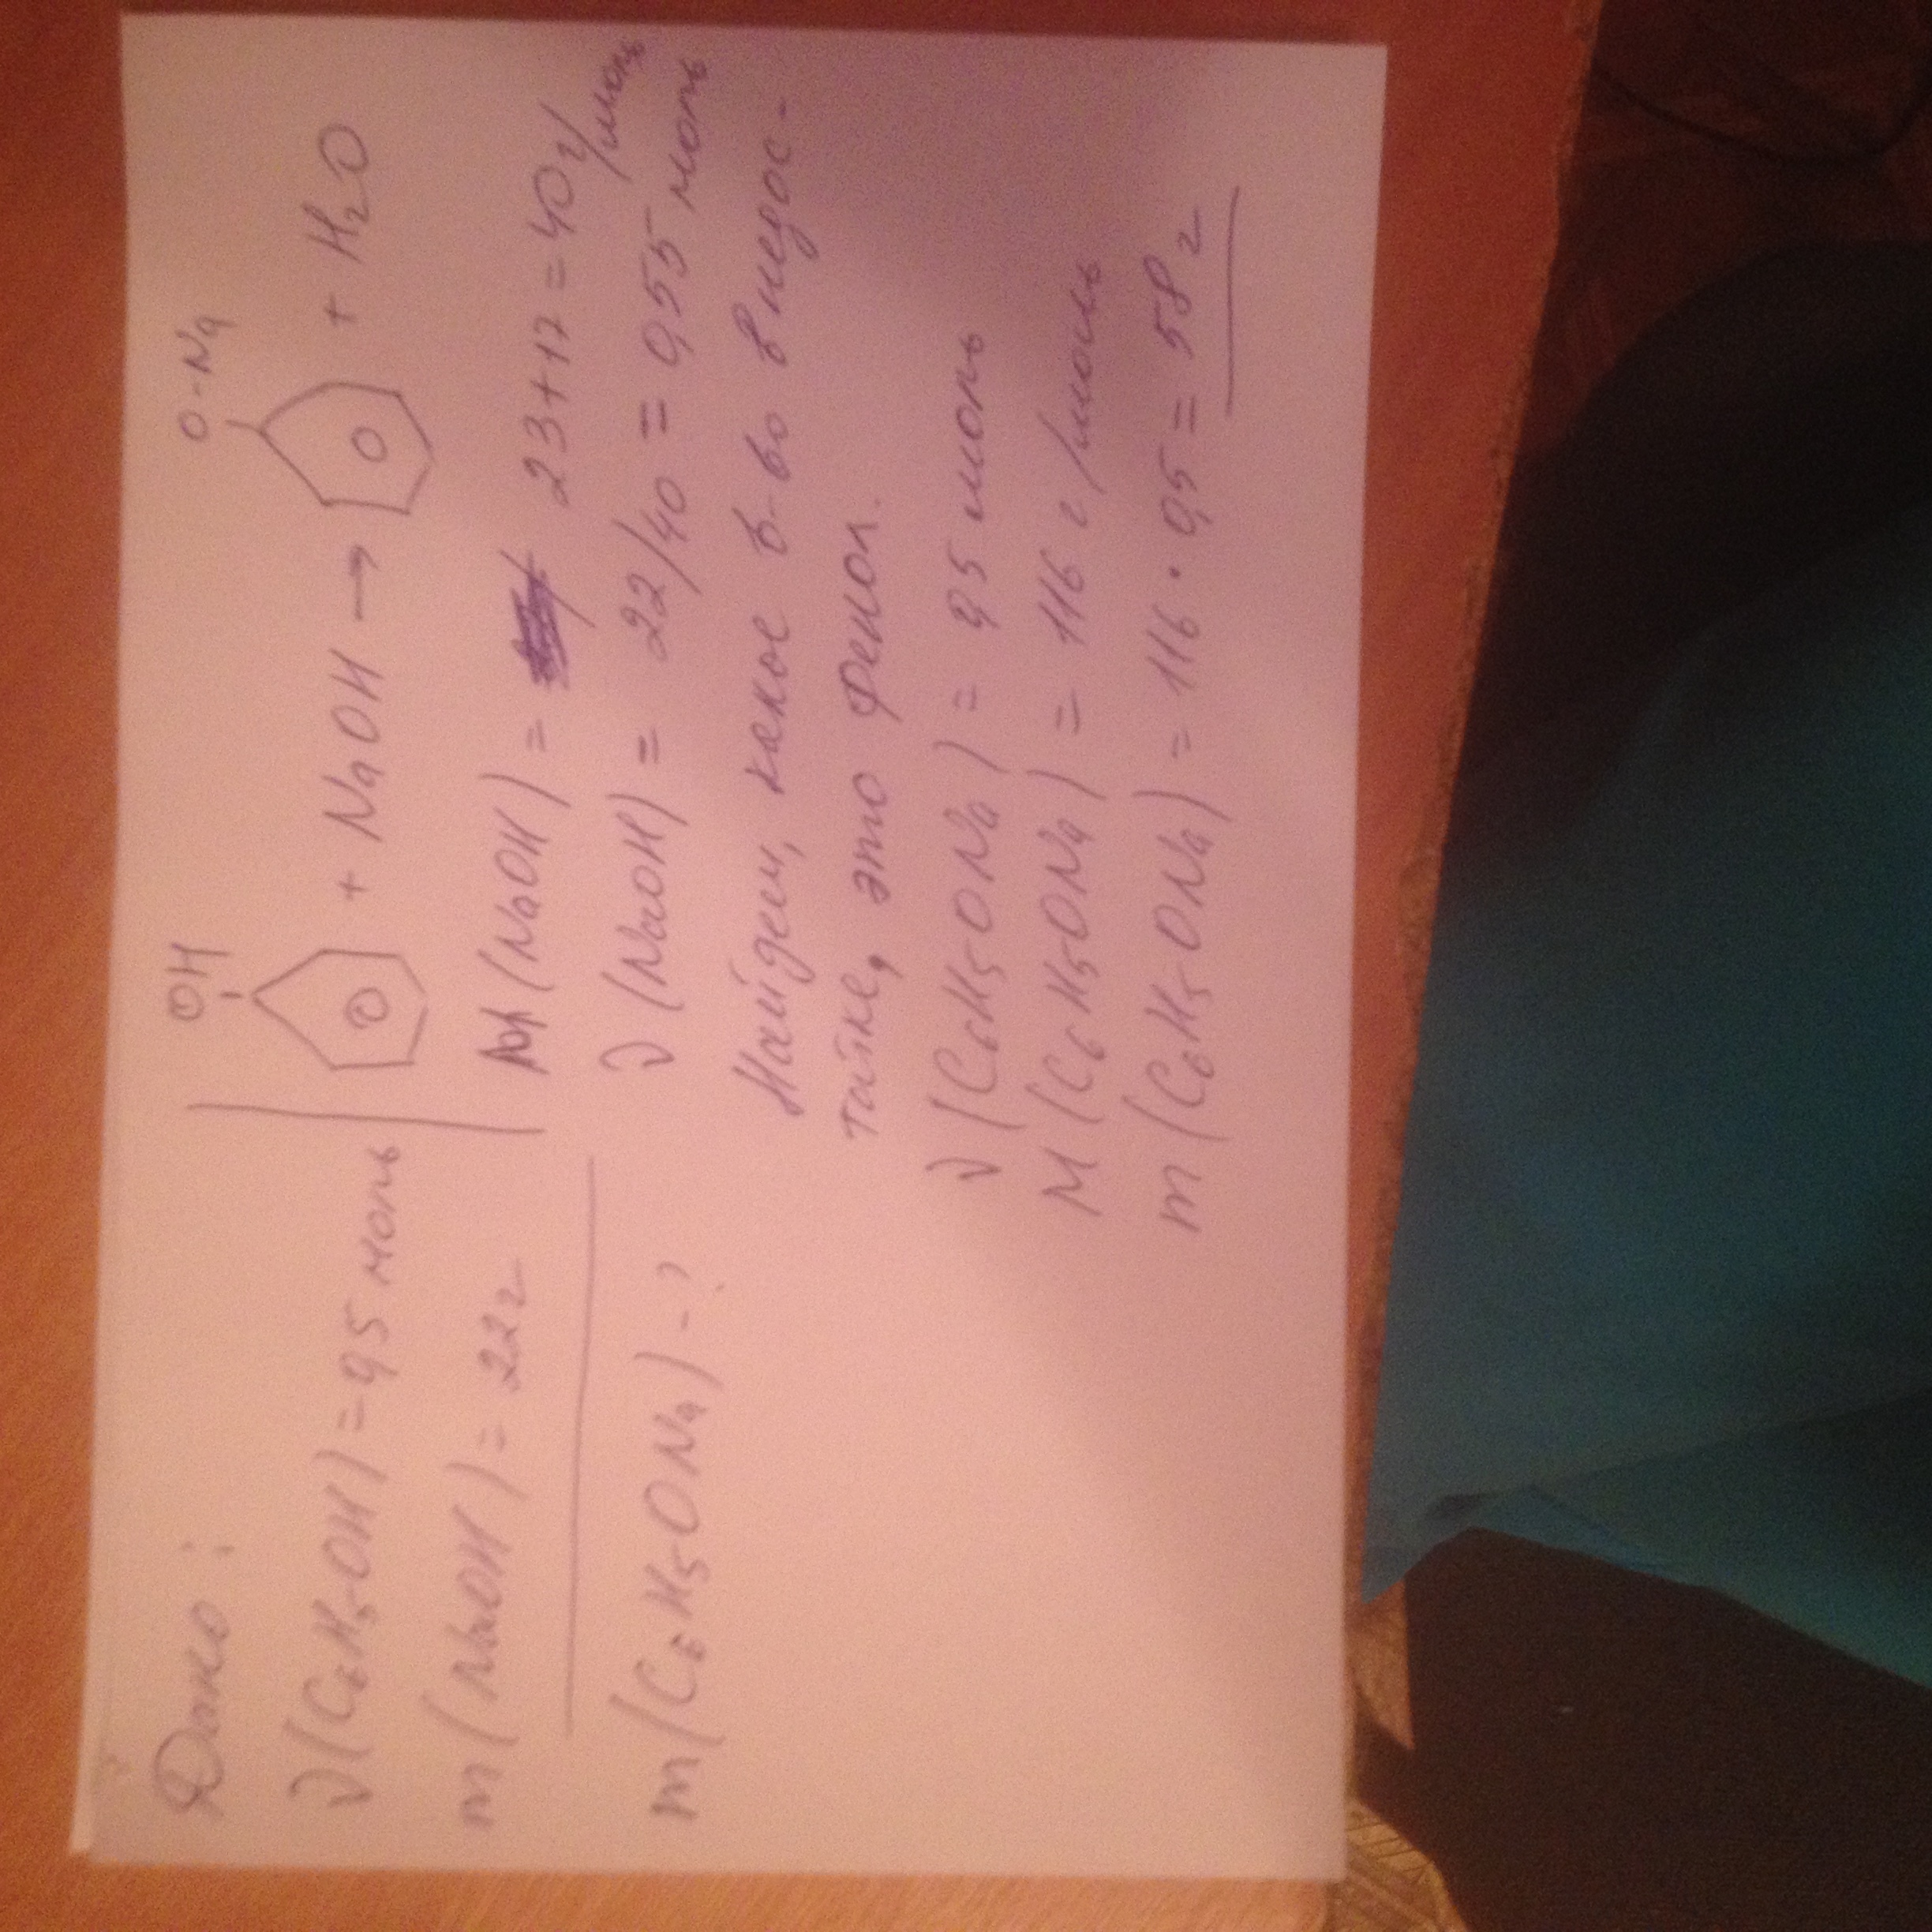 Дано:
ν(C₆H₅OH) = 0,5 моль
m(NaOH) = 22г
m(C₆H₅ONa) - ?
OH
O-Na
+ NaOH → + H₂O
M(NaOH) = 23+17 = 40 г/моль
ν(NaOH) = 22/40 = 0,55 моль
Найдем, какое в-во в недос-
татке, это фенол.
ν(C₆H₅ONa) = 0,5 моль
M(C₆H₅ONa) = 116 г/моль
m(C₆H₅ONa) = 116 · 0,5 = 58 г